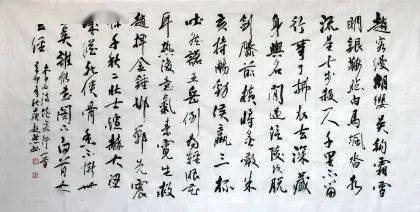 趙客縵胡纓吳鈎霜雪
明銀鞍照白馬颯沓如
流星十步殺一人千里不留
行事了拂衣去深藏
身與名閑過信陵飲脫
劍膝前橫將炙啖朱
亥持觴勸侯嬴三杯
吐然諾五岳倒為輕眼花
耳熱後意氣素霓生救
趙揮金錘邯鄲先震
驚千秋二壯士烜赫大梁
城縱死俠骨香不慚世
上英誰能書閣下白首太
玄經